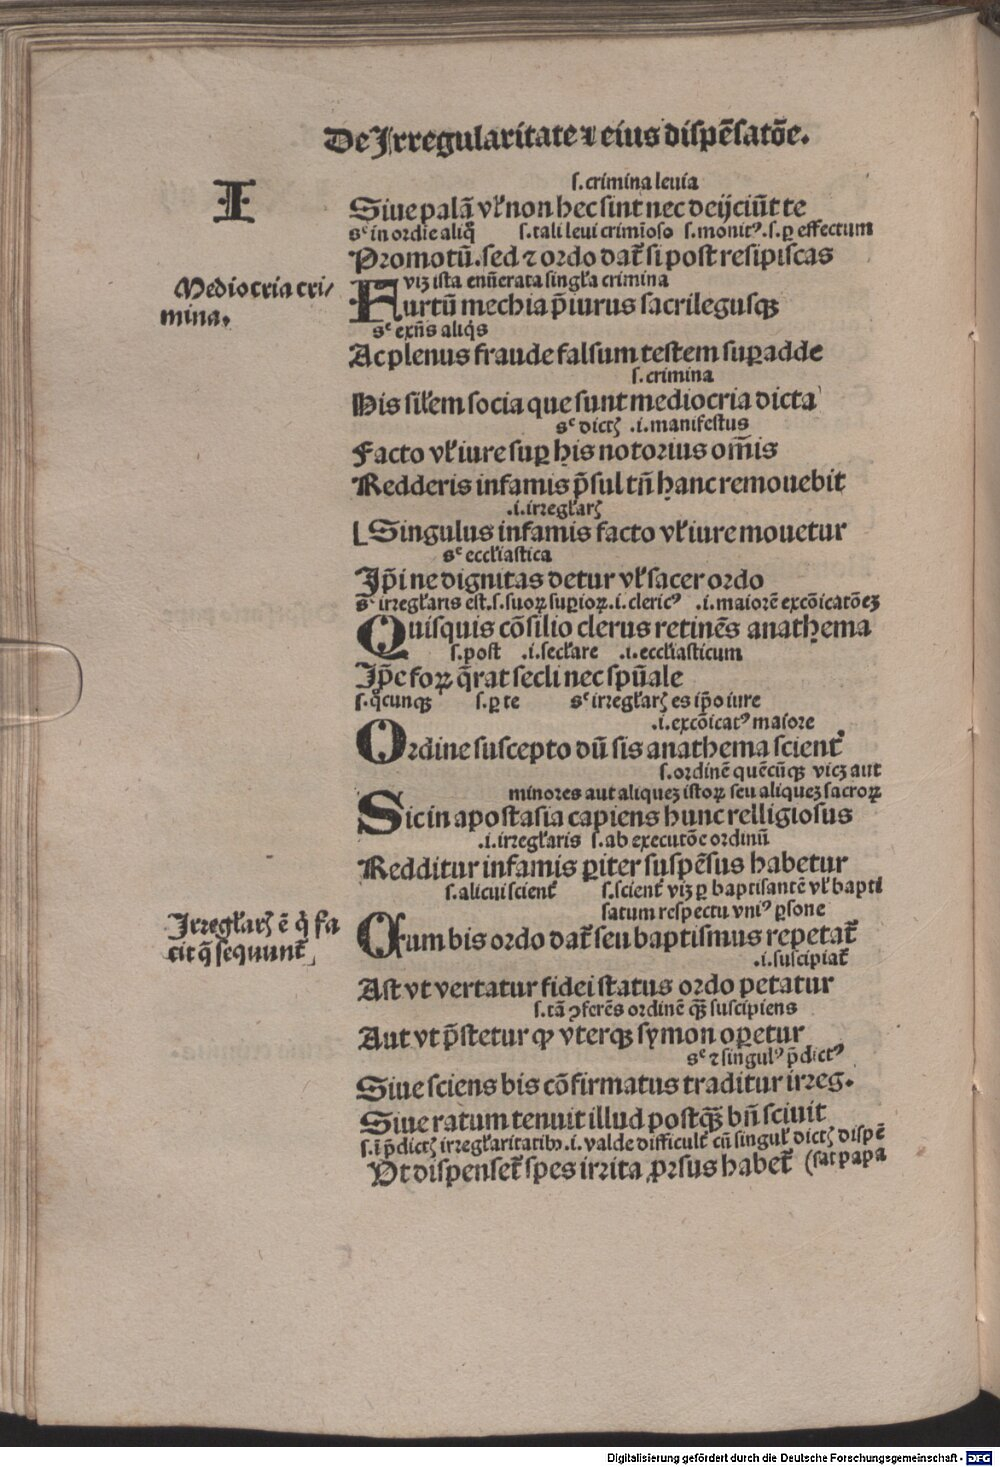 De Irregularitate ⁊ eius dispēsatōe.
I
s. crimina leuia
Siue palā vl' non hec sint nec deijciūt te
sc in ordīe aliq̄ s. tali leui crimīoso s. monitꝰ. s. ꝑ effectum
Promotū. sed ⁊ ordo dat̄ si post resipiscas
viꝫ ista enn̄erata singl'a crimina
Mediocria cri/
mina.
Furtū mechia p̄iurus sacrilegusqꝫ
sc exn̄s aliq̇s
Ac plenus fraude falsum testem suꝑadde
s. crimina
His sil'em socia que sunt mediocria dicta
sc dictꝭ .i. manifestus
Facto vl' iure suꝑ his notorius om̄is
Redderis infamis p̄sul tn̄ hanc remouebit
.i. irregl'arꝭ
Singulus infamis facto vl' iure mouetur
sc eccl'iastica
Ip̄i ne dignitas detur vl' sacer ordo
sc irregl'aris est. s. suoꝝ suꝑioꝝ .i. clericꝰ .i. maiorē excōicatōeꝫ
Quisquis cōsilio clerus retinēs anathema
s. post .i. secl'are .i. eccl'iasticum
Ip̄e foꝝ q̄rat secli nec spūale
s. q̇cunqꝫ s. ꝑ te sc irregl'arꝭ es ip̄o iure
.i. excōicatꝰ maiore
Ordine suscepto dū sis anathema scient̄
s. ordinē quēcūqꝫ vicꝫ aut
minores aut aliqueꝫ istoꝝ seu aliqueꝫ sacroꝝ
Sic in apostasia capiens hunc relligiosus
.i. irregl'aris s. ab executōe ordinū
Redditur infamis ꝑiter suspēsus habetur
s. alicui scient̄ s. scient̄ viꝫ ꝑ baptisantē vl' bapti
satum respectu vniꝰ ꝑsone
Irregl'arꝭ ē q̇ fa
cit q̄ sequunt̄
Cum bis ordo dat̄ seu baptismus repetat̄
.i. suscipiat̄
Ast vt vertatur fidei status ordo petatur
s. tā ꝯferēs ordinē qꝫ suscipiens
Aut vt p̄stetur ꝙ vterqꝫ symon oꝑetur
sc ⁊ singulꝰ p̄dictꝰ
Siue sciens bis cōfirmatus traditur irreg.
Siue ratum tenuit illud postqꝫ bn̄ sciuit
s. ī p̄dictꝭ irregl'aritatibꝰ .i. valde difficult̄ cū singul' dictꝭ dispē
Vt dispenset̄ spes irrita ꝓrsus habet̄ (sat papa
Digitalisierung gefördert durch die Deutsche Forschungsgemeinschaft - DFG